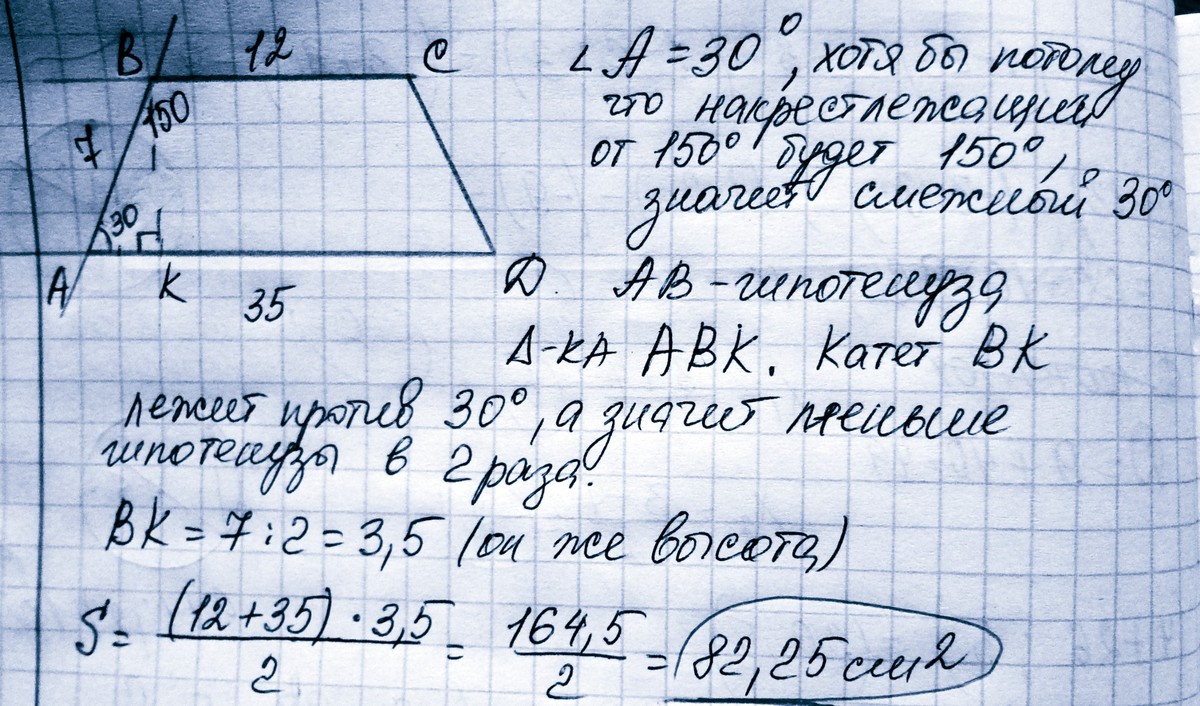 B 12 C
150
7
30
A K 35 D.
∠A = 30°, хотя бы потому
что накрестлежащий
от 150° будет 150°,
значит смежный 30°
AB - гипотенуза
Δ-ка ABK. Катет BK
лежит против 30°, а значит меньше
гипотенузы в 2 раза.
BK = 7 : 2 = 3,5 (он же высота)
S = (12 + 35) · 3,5 / 2 = 164,5 / 2 = 82,25 см2